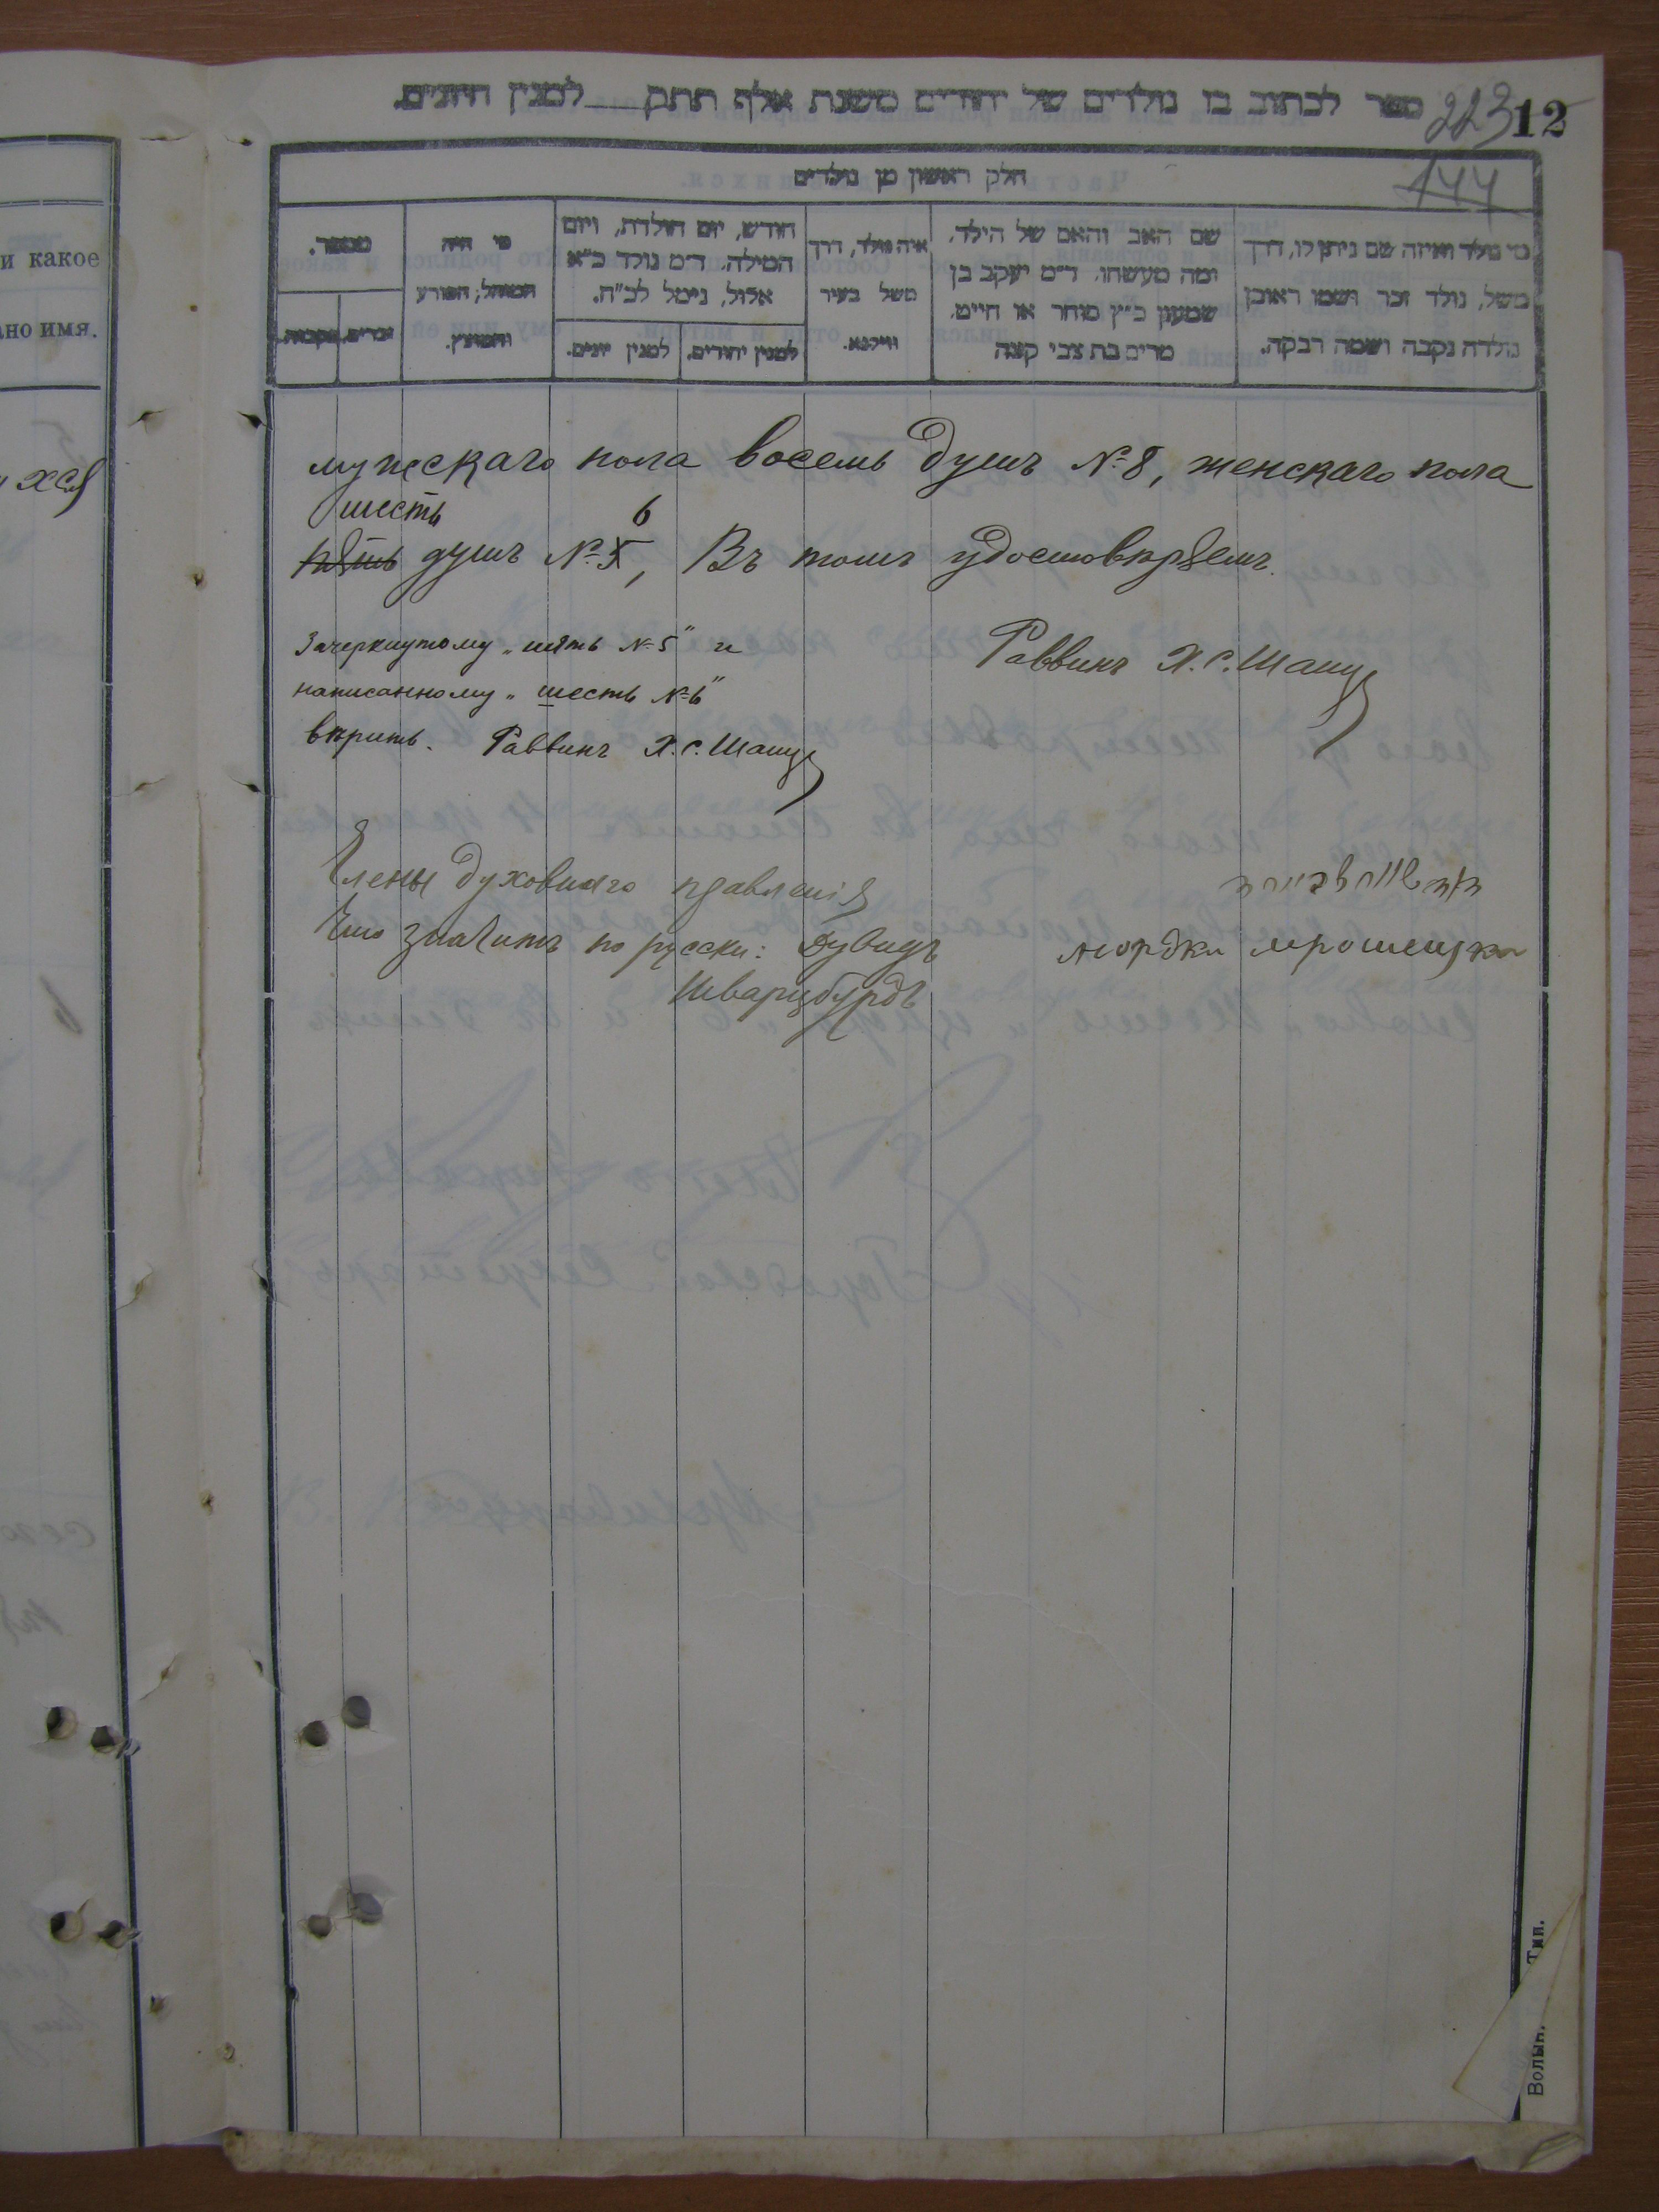 и какое
но имя.
ספר לכתוב בו נולדים של יהודים משנת אלף תתק למנין היונים.
223
12
144
חלק ראשון מן נולדים
מי נולד ואיזה שם ניתן לו, דרך
משל, נולד זכר ושמו ראובן
נולדה נקבה ושמה רבקה.
שם האב והאם של הילד,
ומה מעשהו. ד״מ יעקב בן
שמעון כ״ץ סוחר או חייט,
מרים בת צבי קצה
איה נולד, דרך
משל בעיר
ווילנא.
חודש, יום הולדת, ויום
המילה. ד״מ נולד כ״א
אלול, נימל לכ״ח.
למנין יהודים.
למנין יונים.
מי היה
המוהל, הפורע
והמוצץ.
מספר.
זכרים.
נקבות.
мужскаго пола восемь душъ № 8, женскаго пола
шесть 6
пять душъ № 5, Въ томъ удостовѣряемъ.
Зачеркнутому „пять № 5" и
написанному „шесть № 6"
вѣрить. Раввинъ Х. С. Шапир
Раввинъ Х. С. Шапир
Члены духовнаго правленія
Что значитъ по русски: Дувидъ
Шварцбурдъ
мордки мрошецки
Волын. Тип.